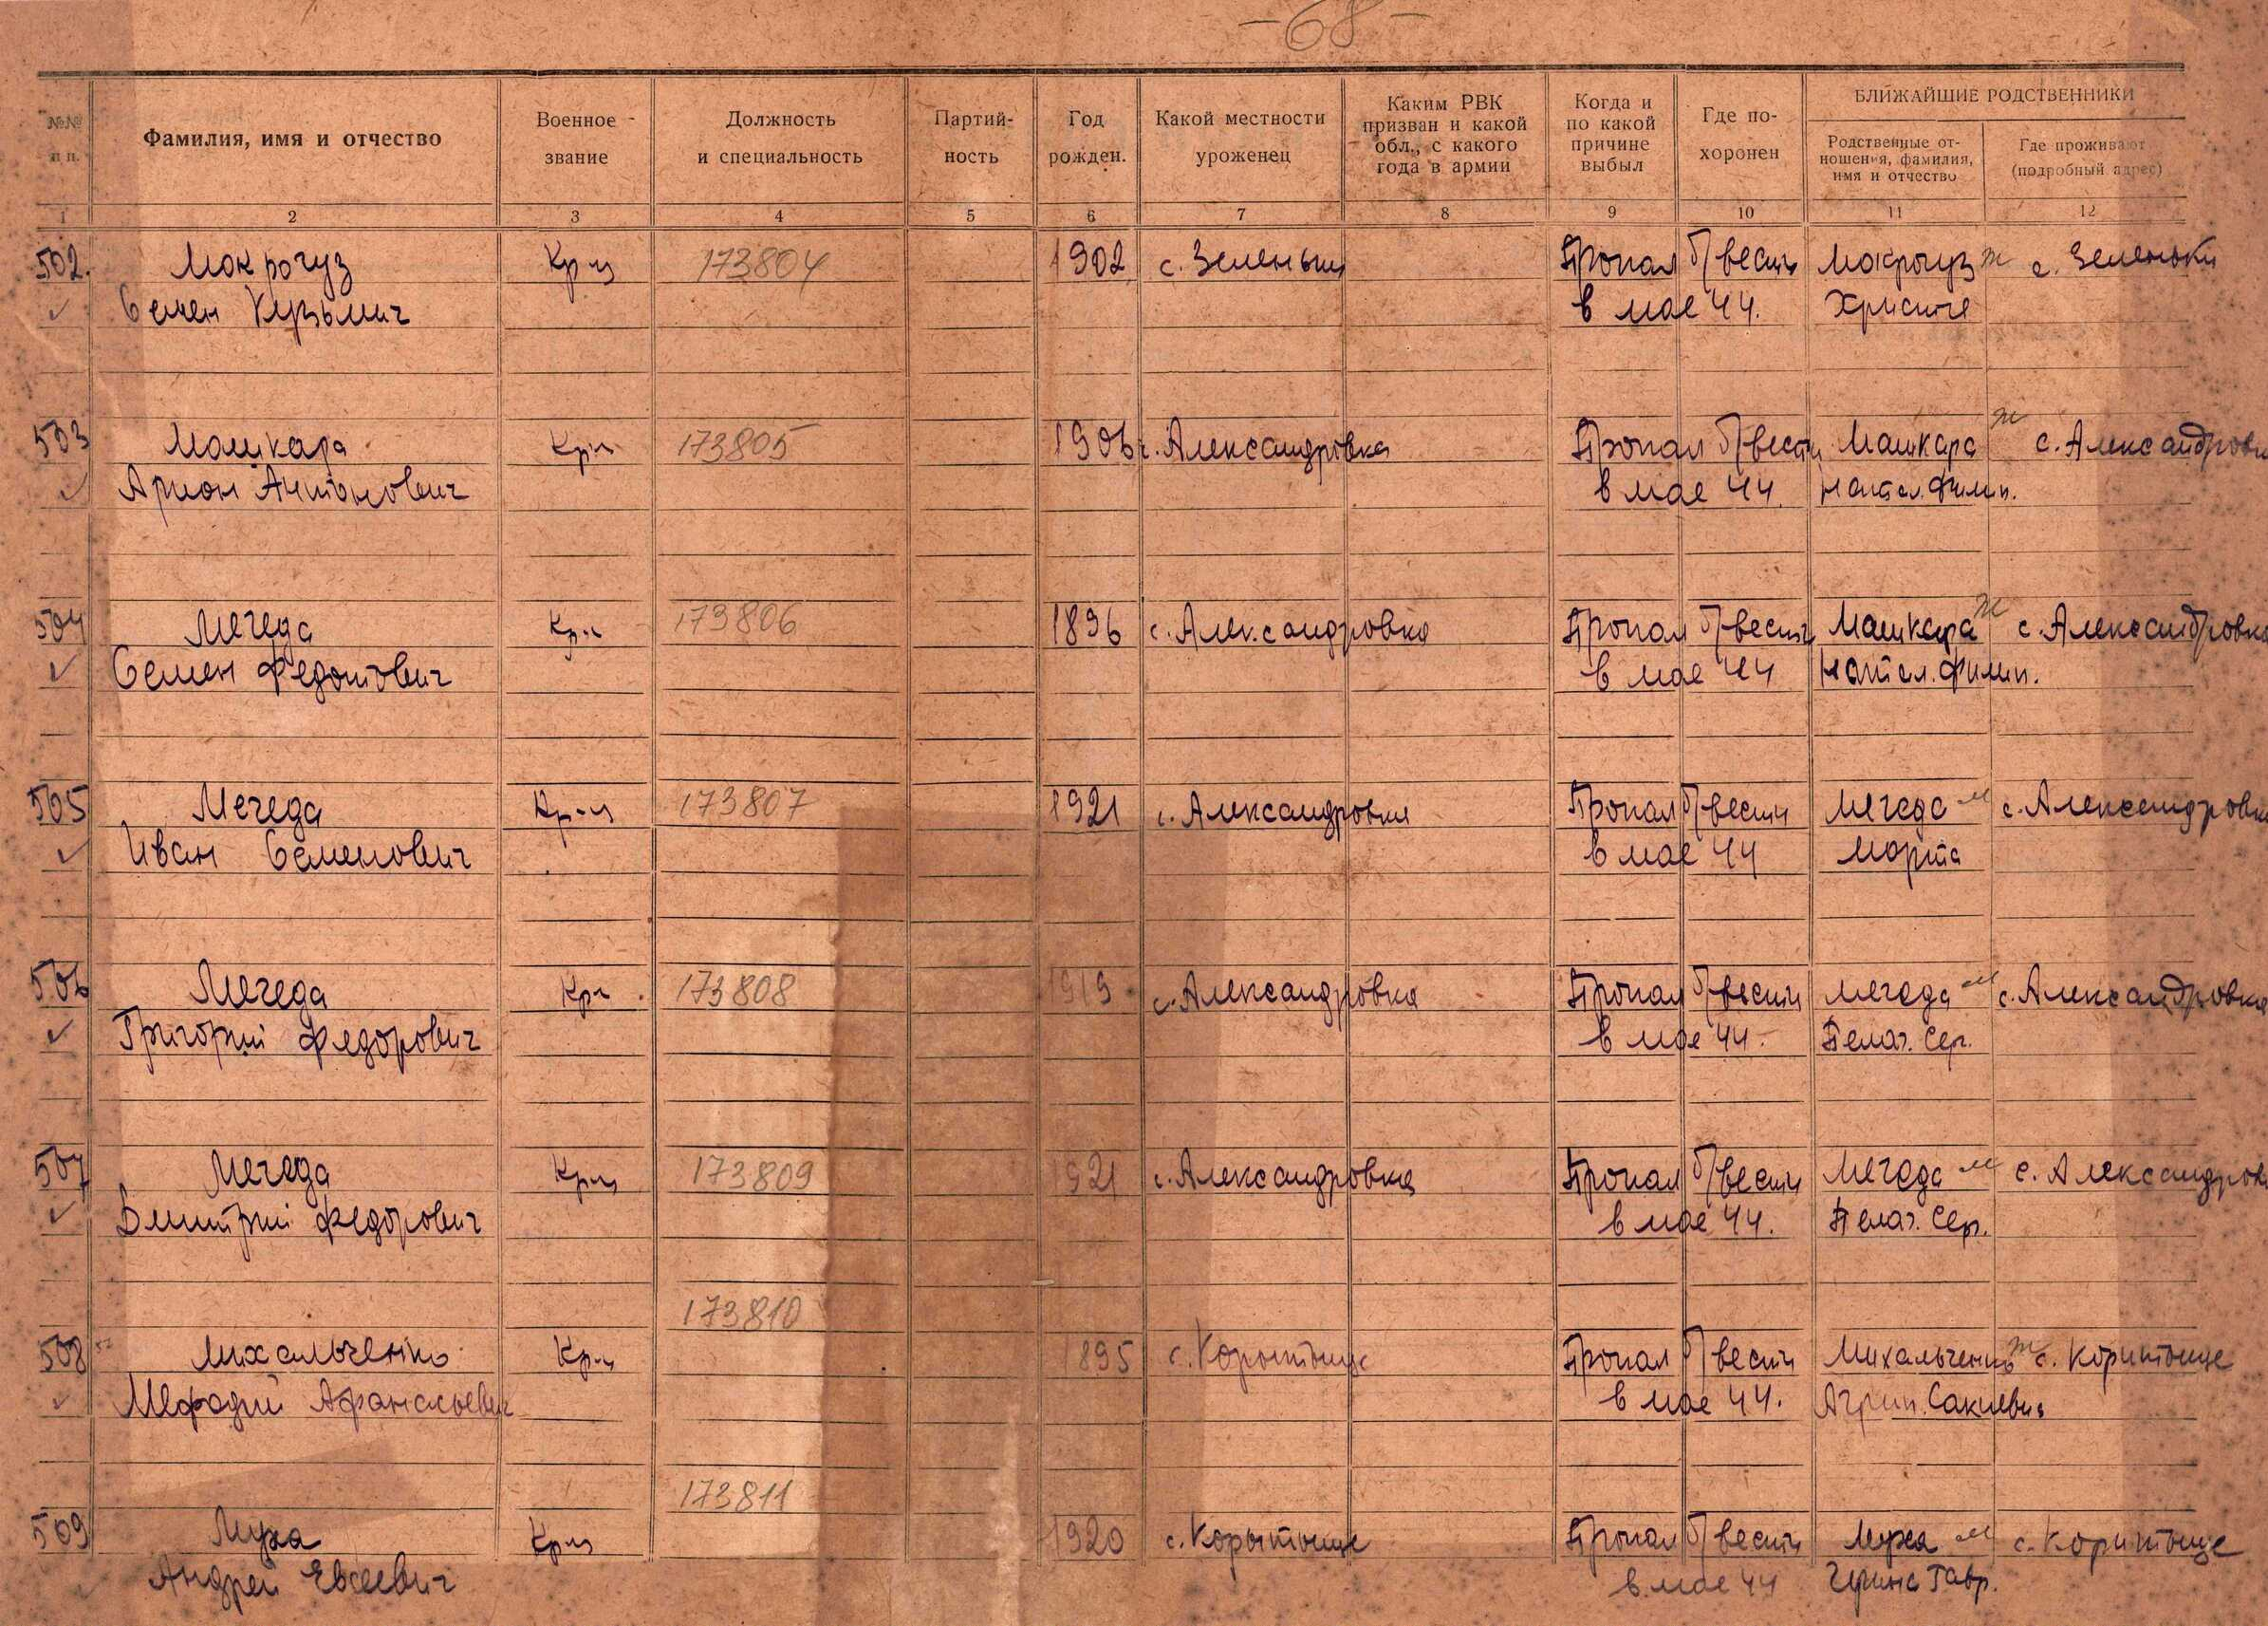 -68-
№№ п п.
Фамилия, имя и отчество
Военное звание
Должность и специальность
Партий- ность
Год рожден.
Какой местности уроженец
Каким РВК призван и какой обл., с какого года в армии
Когда и по какой причине выбыл
Где по- хоронен
БЛИЖАЙШИЕ РОДСТВЕННИКИ
Родственные от- ношения, фамилия, имя и отчество
Где проживают (подробный адрес)
1 2 3 4 5 6 7 8 9 10 11 12
502. Мокрогуз Кр-ц 173804 1902 с. Зеленьки Пропал б/вести Мокрогуз ж с. Зеленьки
Семен Кузьмич в мае 44. Христя
503 Машкара Кр-ц 173805 1906 с. Александровка Пропал б/вести Машкара ж с. Александровк
Арион Антонович в мае 44. Натал. Филип.
504 Мегеда Кр-ц 173806 1896 с. Александровка Пропал б/вести Машкара ж с. Александровка
Семен Федотович в мае 44 Натал. Филип.
505 Мегеда Кр-ц 173807 1921 с. Александровка Пропал б/вести Мегеда м с. Александровка
Иван Семенович в мае 44 Марта
506 Мегеда Кр-ц 173808 1919 с. Александровка Пропал б/вести Мегеда м с. Александровка
Григорий Федорович в мае 44. Пелаг. Сер.
507 Мегеда Кр-ц 173809 1921 с. Александровка Пропал б/вести Мегеда м с. Александровк
Дмитрий Федорович в мае 44. Пелаг. Сер.
173810
508 Михальченко Кр-ц 1895 с. Корытыще Пропал б/вести Михальченко ж с. Коритыще
Мефодий Афанасьевич в мае 44. Агрип. Сакиевна
173811
509 Муха Кр-ц 1920 с. Корытыще Пропал б/вести Муха м с. Коритыще
Андрей Евсеевич в мае 44 Гавр.